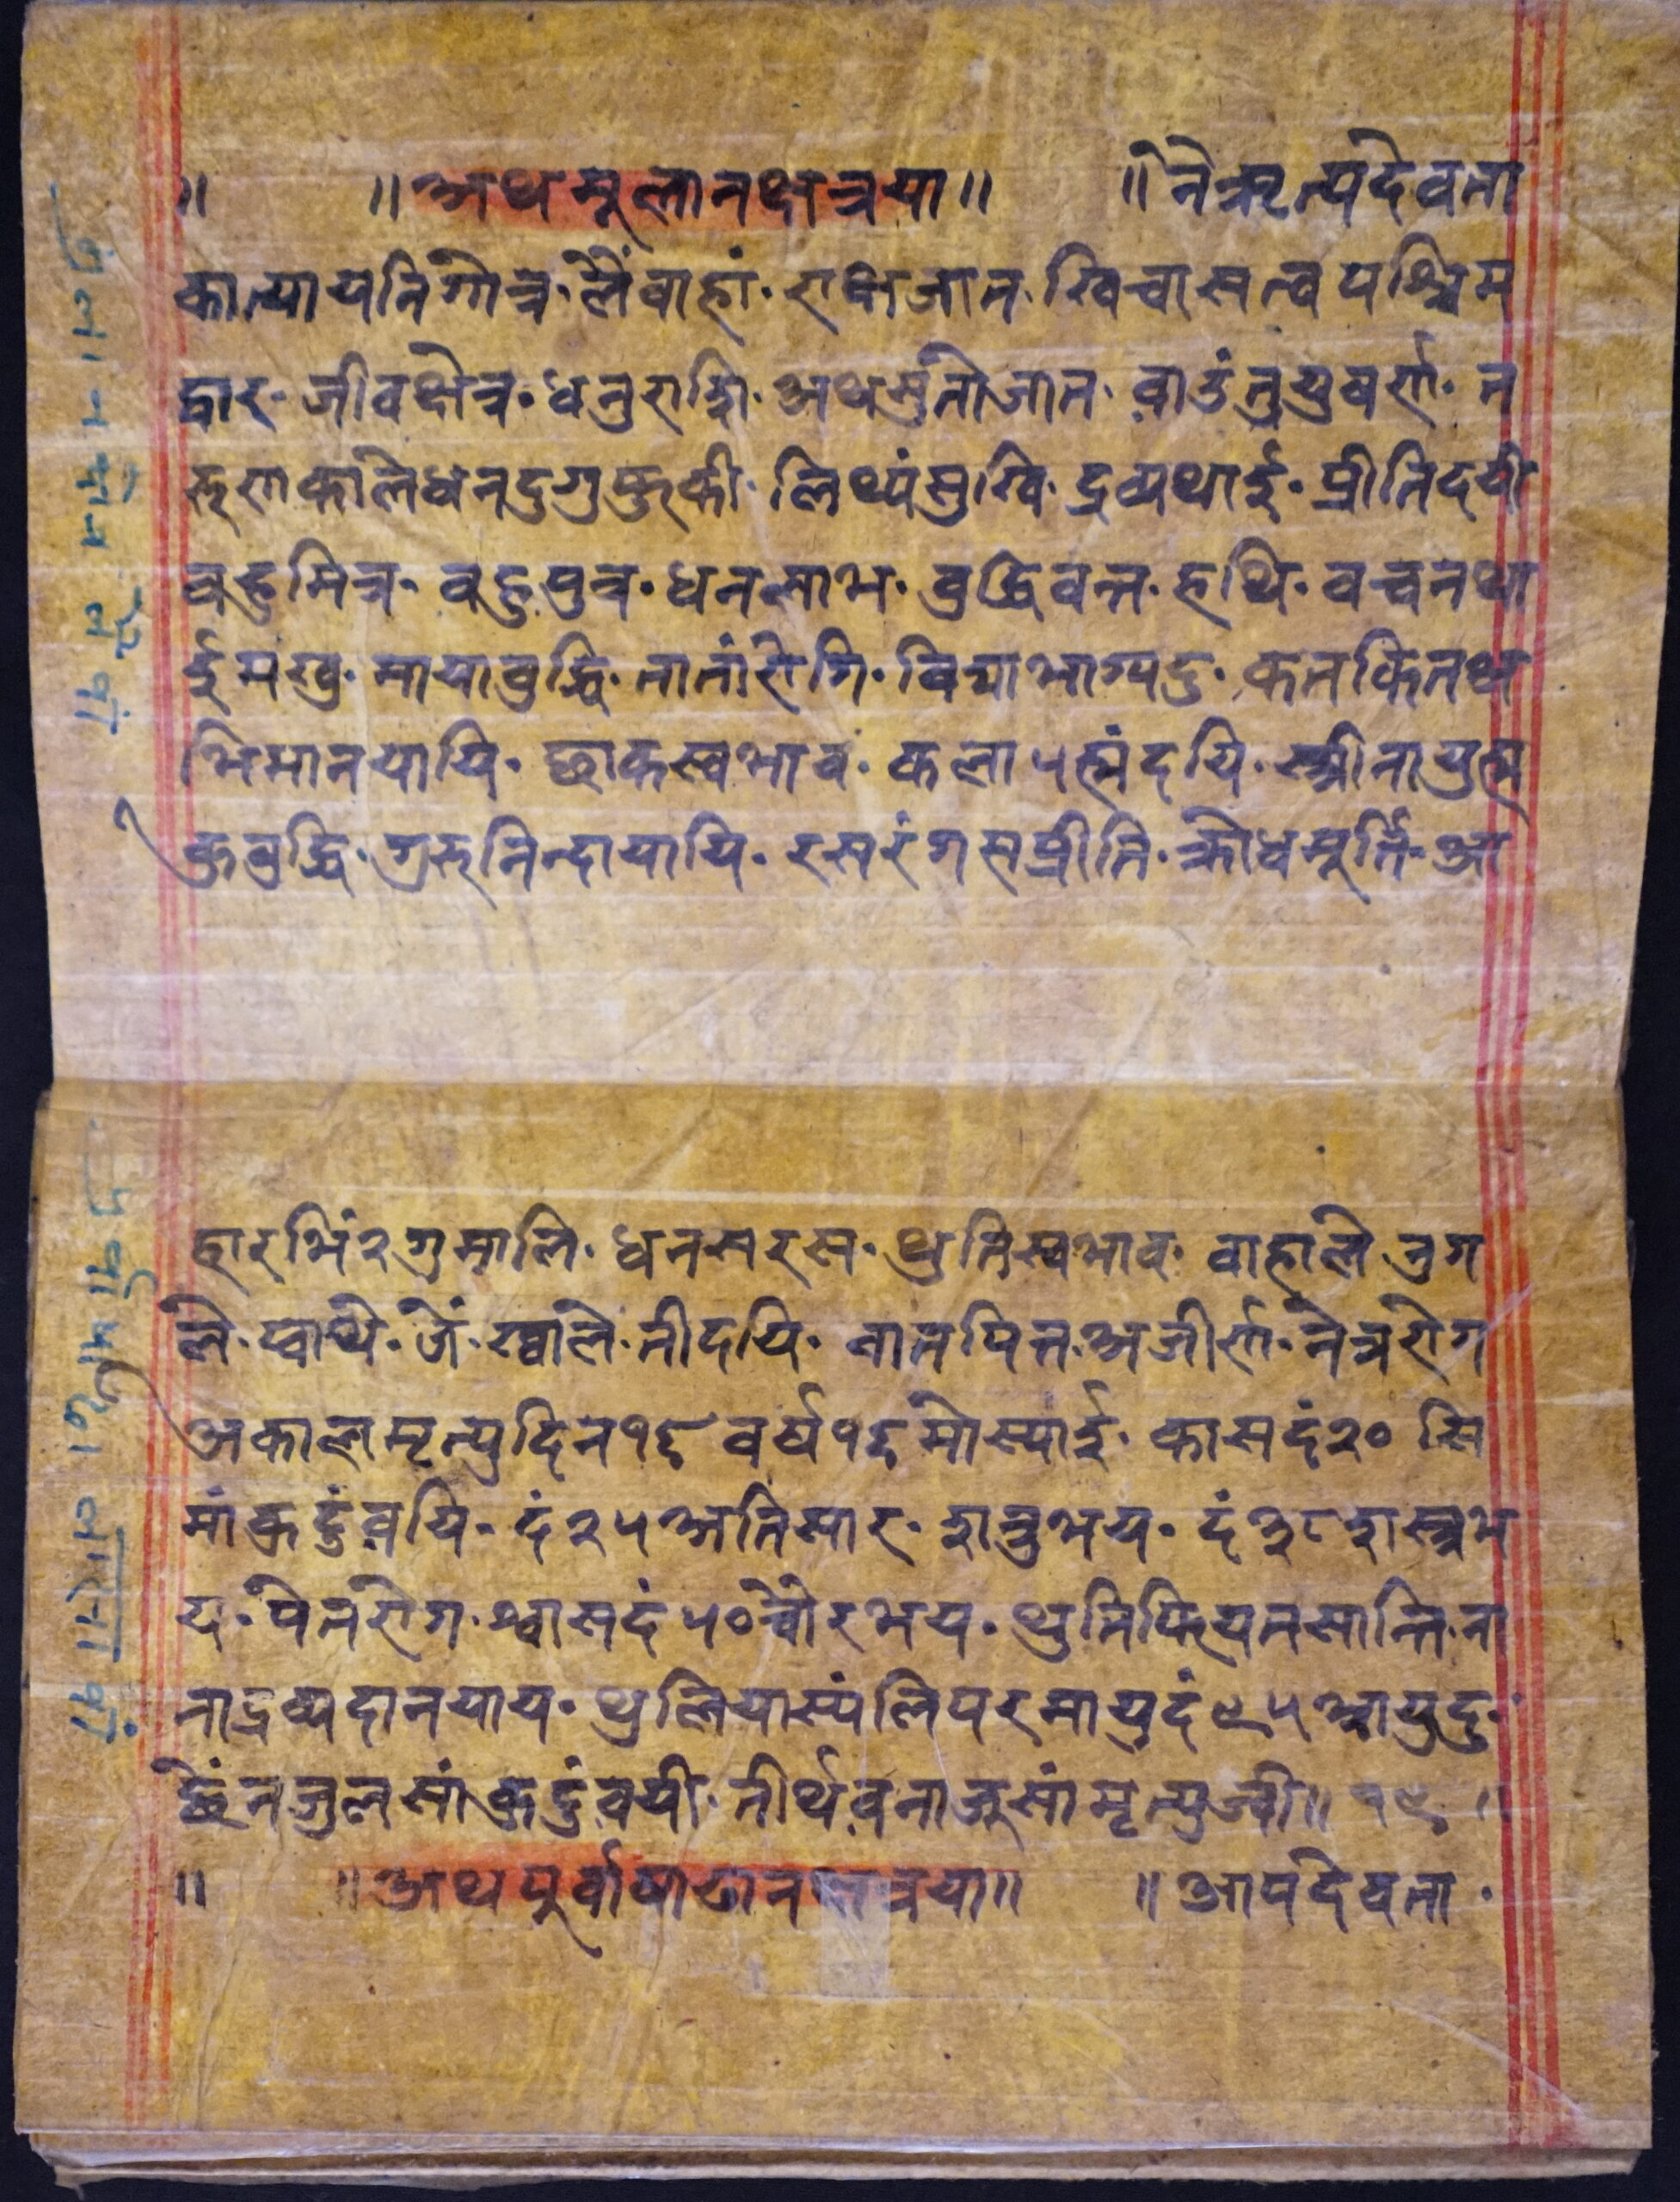 ॥ ॥ अथमूलानक्षत्रया ॥ ॥ नेऋत्यदेवता
कात्यायनिगोत्र· लैंवाहां· राक्षजात· खिचासत्व पश्चिम
द्वार· जीवक्षेत्र· धनुराशि· अथमुतोजात· वाउंनुयुवर्ण· त
रुणकाले धनदुगुफुक्की· लिथ्यंसुखि· द्रव्यथाई· प्रीतिदयी
बहुमित्र· बहुपुत्र· धनलाभ· बुद्धिवन्त· हथि· वचनथा
ईमखु· मायाबुद्धि· नानांरोगि· विद्याभाग्यदु· कतकितअ
भिमानयायि· छाकस्वभाव· कला५ह्मंदयि· स्त्रीनायुह्म
कुबुद्धि· गुरुनिन्दायायि· रसरंगसप्रीति· क्रोधमूर्ति· आ
हारभिं२गुमालि· धनसरस· थुतिस्वभाव· वाहाले नुग
ले· प्वाथे· जें· ख्वाले· तीदयि· वातपित्त· अजीर्ण· नेत्ररोग
अकालमृत्युदिन१६ वर्ष१६ मोस्याई· कासदं२० सि
मांकुटुंवयि· दं२५ अतिसार· शत्रुभय· दं३८ शस्त्रभ
य· पेतरोग· श्वासदं५० चौरभय· थुतिफियतसान्ति· ना
नाद्रव्यदानयाय· थुलियास्यंलिपरमायुदं९५ आयुदु·
छेंनजुलसांकुटुंवयी· तीर्थवनाजुसांमृत्युज्वी॥ १९ ॥
॥ ॥ अथपुर्वाषाढानक्षत्रया ॥ ॥ आपदेवता·